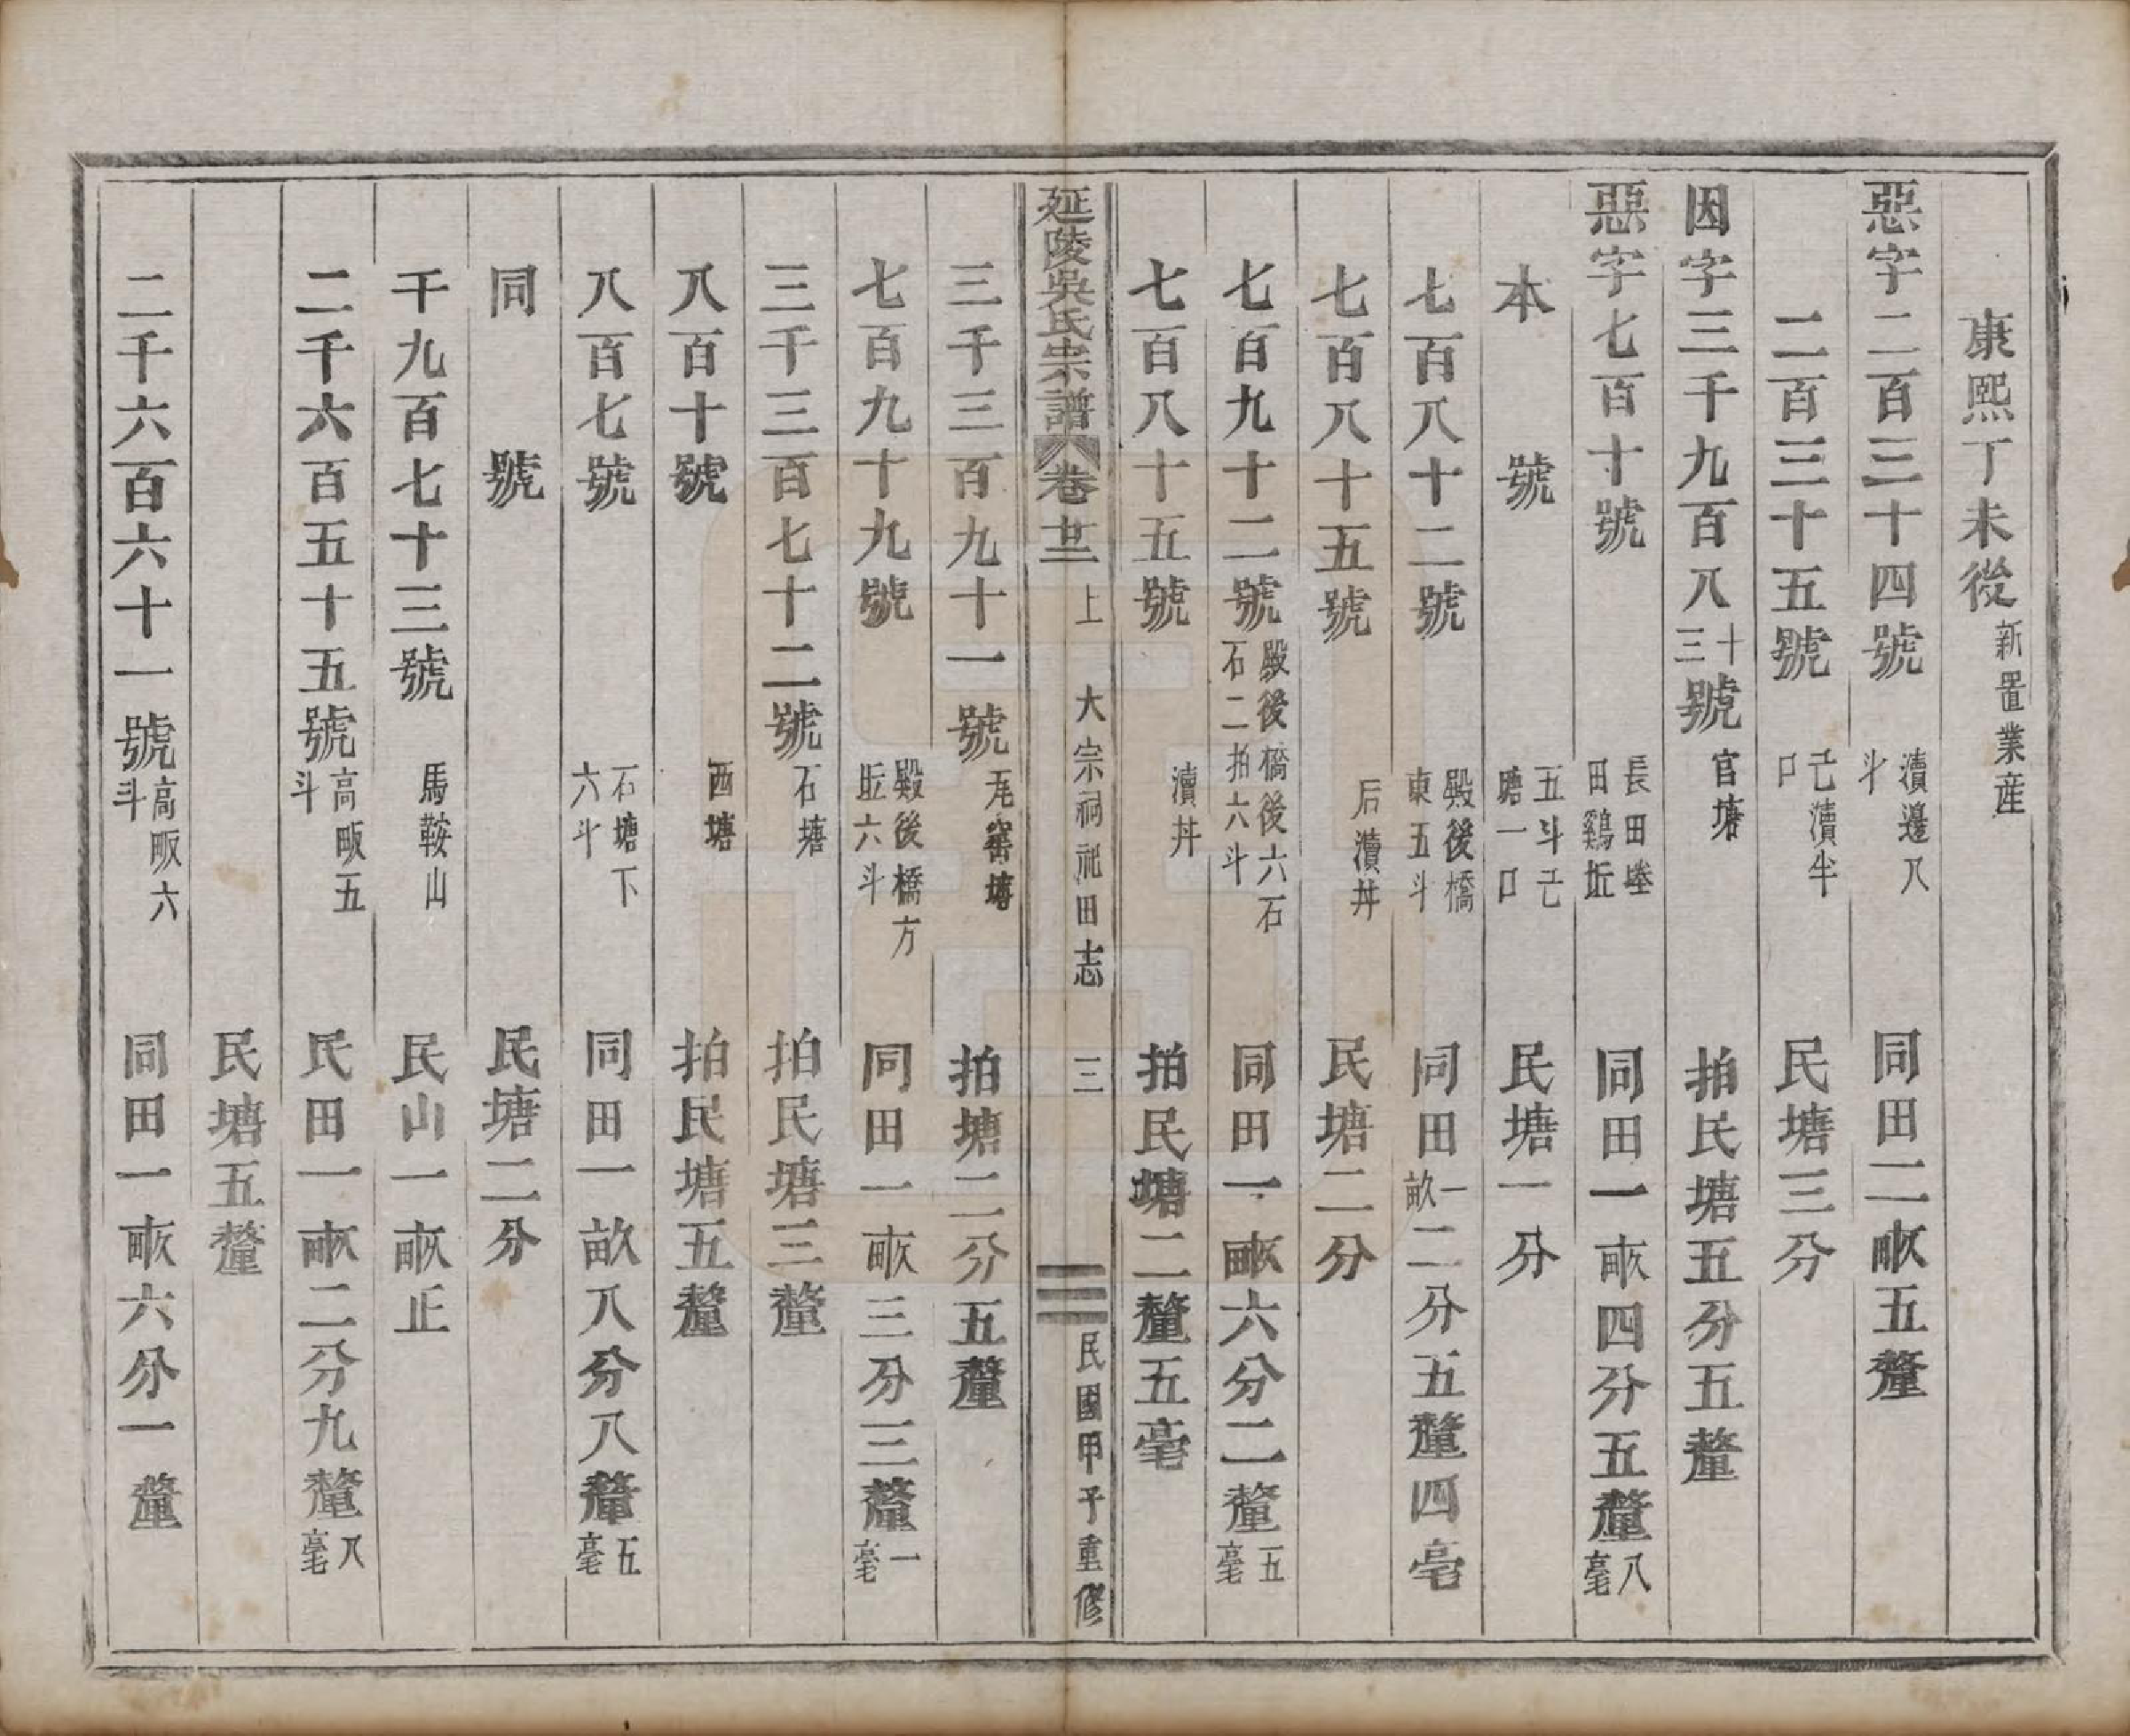 康熙丁未後新置業産
惡字二百三十四號瀆邊八斗同田二畝五釐
二百三十五號己瀆半口民塘三分
因字三千九百八十三號官塘拍民塘五分五釐
惡字七百十號長田塍田鷄坵同田一畝四分五釐八毫
本號五斗己塘一口民塘一分
七百八十二號殿後橋東五斗同田一畝二分五釐四毫
七百八十五號后瀆丼民塘二分
七百九十二號殿後橋後六石石二拍六斗同田一畝六分二釐五毫
七百八十五號瀆丼拍民塘二釐五毫
延陵吳氏宗譜 卷廿二上 大宗祠祀田志 三 民國甲子重修
三千三百九十一號瓦窰塘拍塘二分五釐
七百九十九號殿後橋方坵六斗同田一畝三分三釐一毫
三千三百七十二號石塘拍民塘三釐
八百十號西塘拍民塘五釐
八百七號石塘下六斗同田一畝八分八釐五毫
同號民塘二分
千九百七十三號馬鞍山民山一畝正
二千六百五十五號高畈五斗民田一畝二分九釐八毫
民塘五釐
二千六百六十一號高畈六斗同田一畝六分一釐